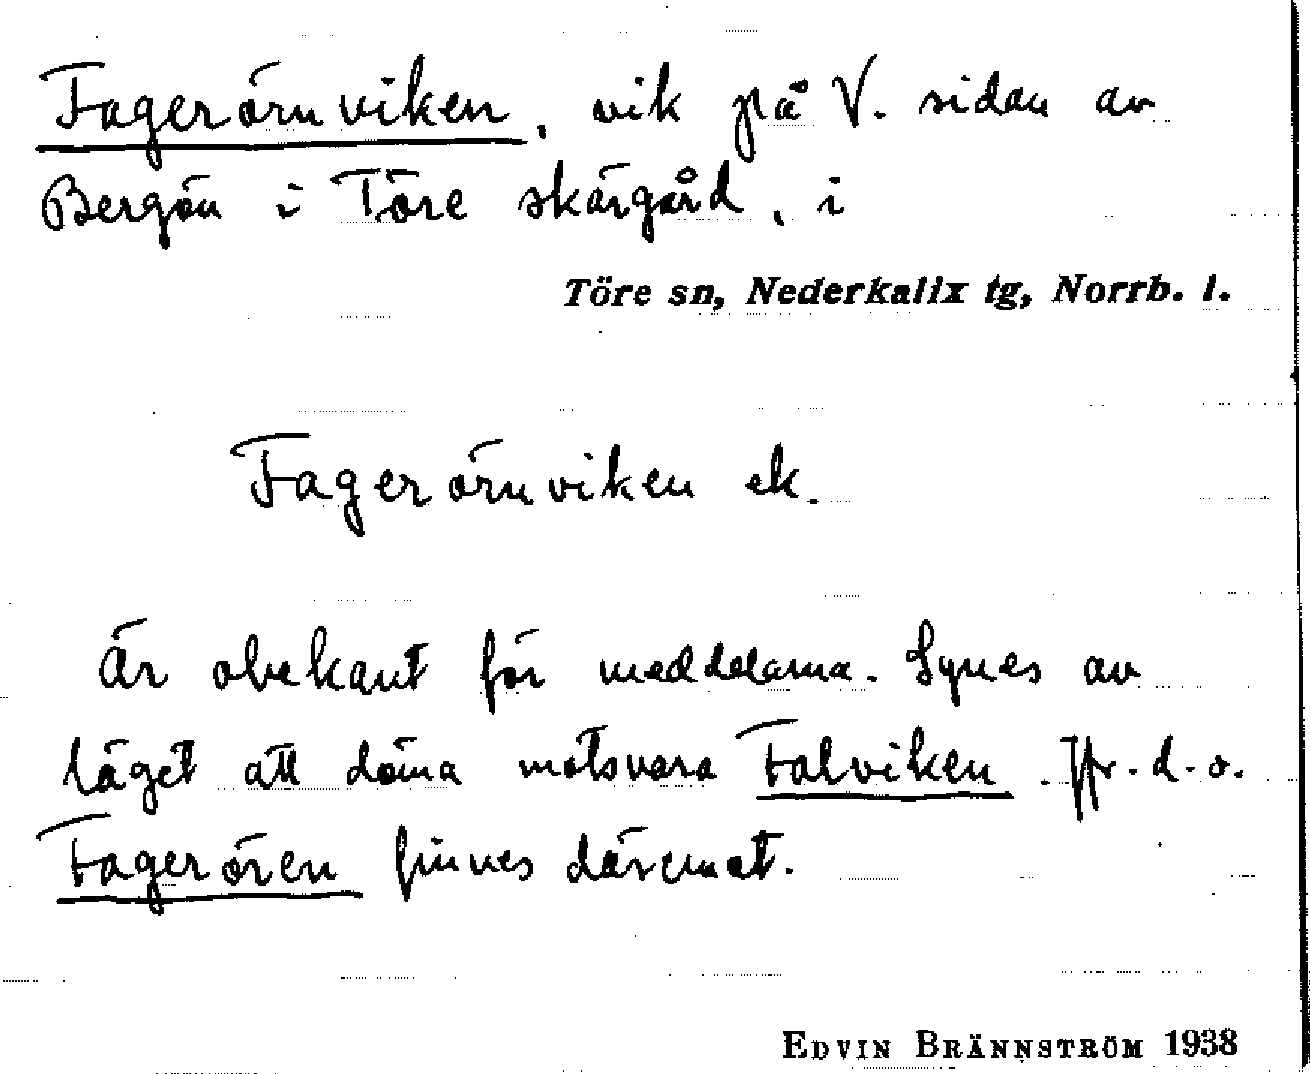 Fagerörnviken, vik på V. sidan av
Bergön i Töre skärgård, i
Töre sn, Nederkalix tg, Norrb. l.
Fagerörnviken ek.
Är obekant för meddelarna. Synes av
läget att döma motsvara Falviken. Jfr. d. o.
Fagerören finnes däremot.
EDVIN BRÄNNSTRÖM 1938